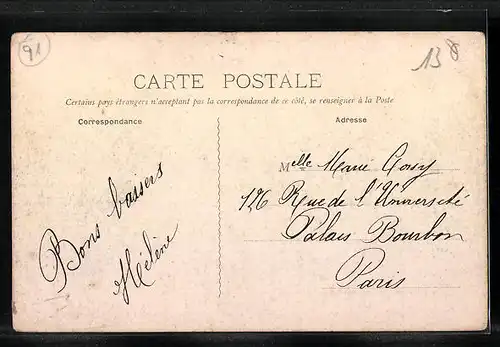 91
138
CARTE POSTALE
Certains pays étrangers n'acceptant pas la correspondance de ce côté, se renseigner à la Poste
Correspondance
Adresse
Bons bassers
Hélène
Melle Marie
126 Rue de l'Université
Palais Bourbon
Paris